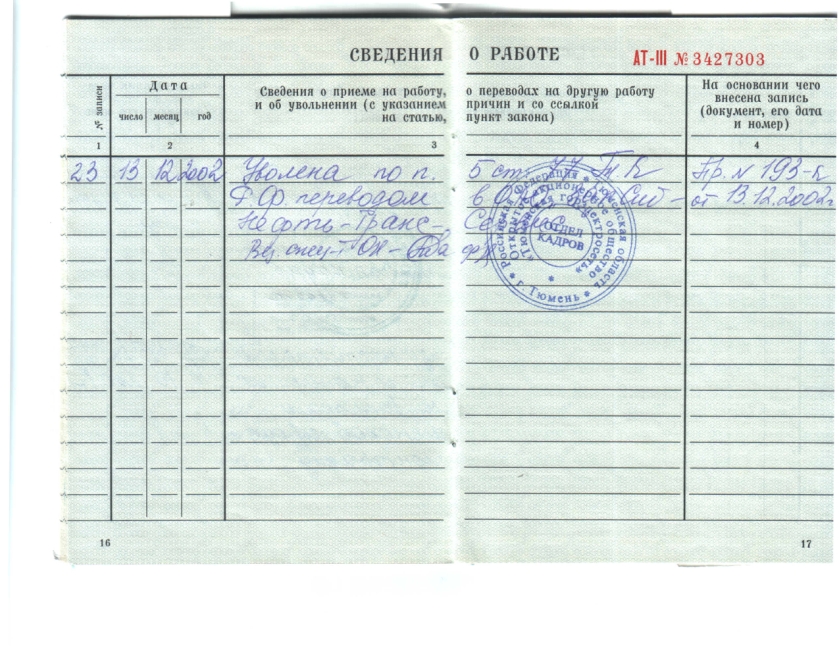 СВЕДЕНИЯ О РАБОТЕ АТ-III № 3427303
№ записи
Дата
число месяц год
Сведения о приеме на работу, о переводах на другую работу
и об увольнении (с указанием причин и со ссылкой
на статью, пункт закона)
На основании чего
внесена запись
(документ, его дата
и номер)
1 2 3 4
23 13 12 2002 Уволена по п. 5 ст. 77 Тк Пр. N 193-к
РФ. переводом в от 13.12.2002г
Нефть-Транс-
Российская Федерация * Тюменская область
Открытое акционерное общество
* г. Тюмень *
ОТДЕЛ
КАДРОВ
16 17